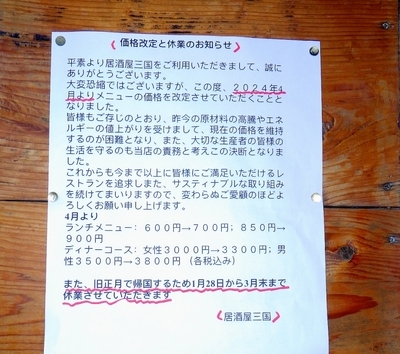 (価格改定と休業のお知らせ)
平素より居酒屋三国をご利用いただきまして、誠に
ありがとうございます。
大変恐縮ではございますが、この度、2024年4
月よりメニューの価格を改定させていただくことと
なりました。
皆様もご存じのとおり、昨今の原材料の高騰やエネ
ルギーの値上がりを受けまして、現在の価格を維持
するのが困難となり、また、大切な生産者の皆様の
生活を守るのも当店の責務と考えこの決断となりま
した。
これからも今まで以上に皆様にご満足いただけるレ
ストランを追求しまた、サスティナブルな取り組み
を続けてまいりますので、変わらぬご愛顧のほどよ
ろしくお願い申し上げます。
4月より
ランチメニュー:600円→700円;850円→
900円
ディナーコース:女性3000円→3300円;男
性3500円→3800円(各税込み)
また、旧正月で帰国するため1月28日から3月末まで
休業させていただきます
(居酒屋三国)